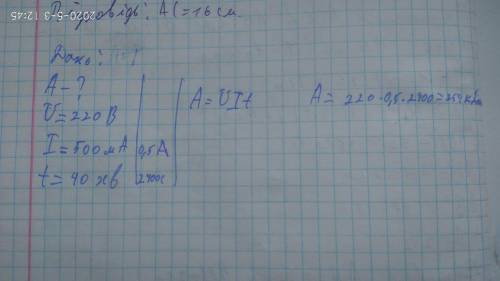 2020-5-3 12:45
Відповідь: AC = 16 см
Дано:
A - ?
U = 220 В
I = 500 мА 0,5 А
t = 40 хв 2400с
A = UIt
A = 220 · 0,5 · 2400 =